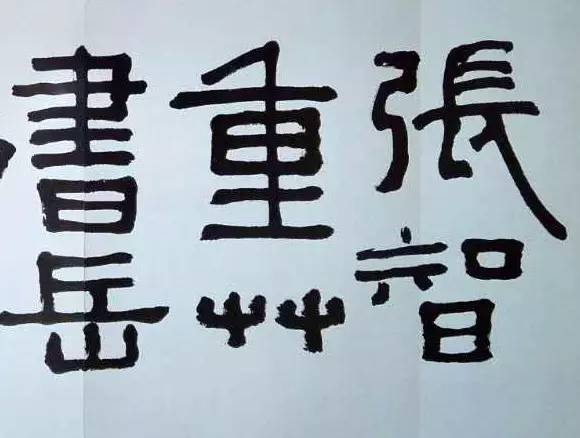 張智
重艸
書岳